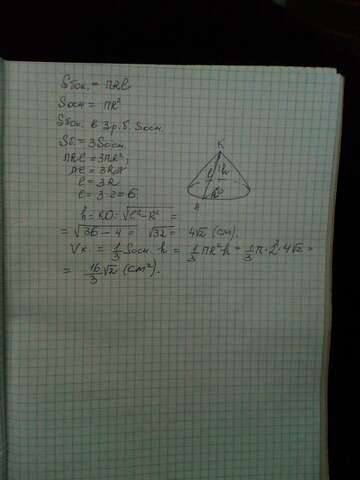 Sбок. = πRl.
Sосн = πR²
Sбок. в 3 р. б. Sосн.
Sб. = 3Sосн.
πRl = 3πR²;
l = 3R
l = 3·2 = 6.
K
l h
A R
h = KO = √l² - R² =
= √36 - 4 = √32 = 4√2 (см).
Vк. = 1/3 Sосн. h = 1/3 πR²h = 1/3 π·2²·4√2 =
= 16/3 √2 (см²).